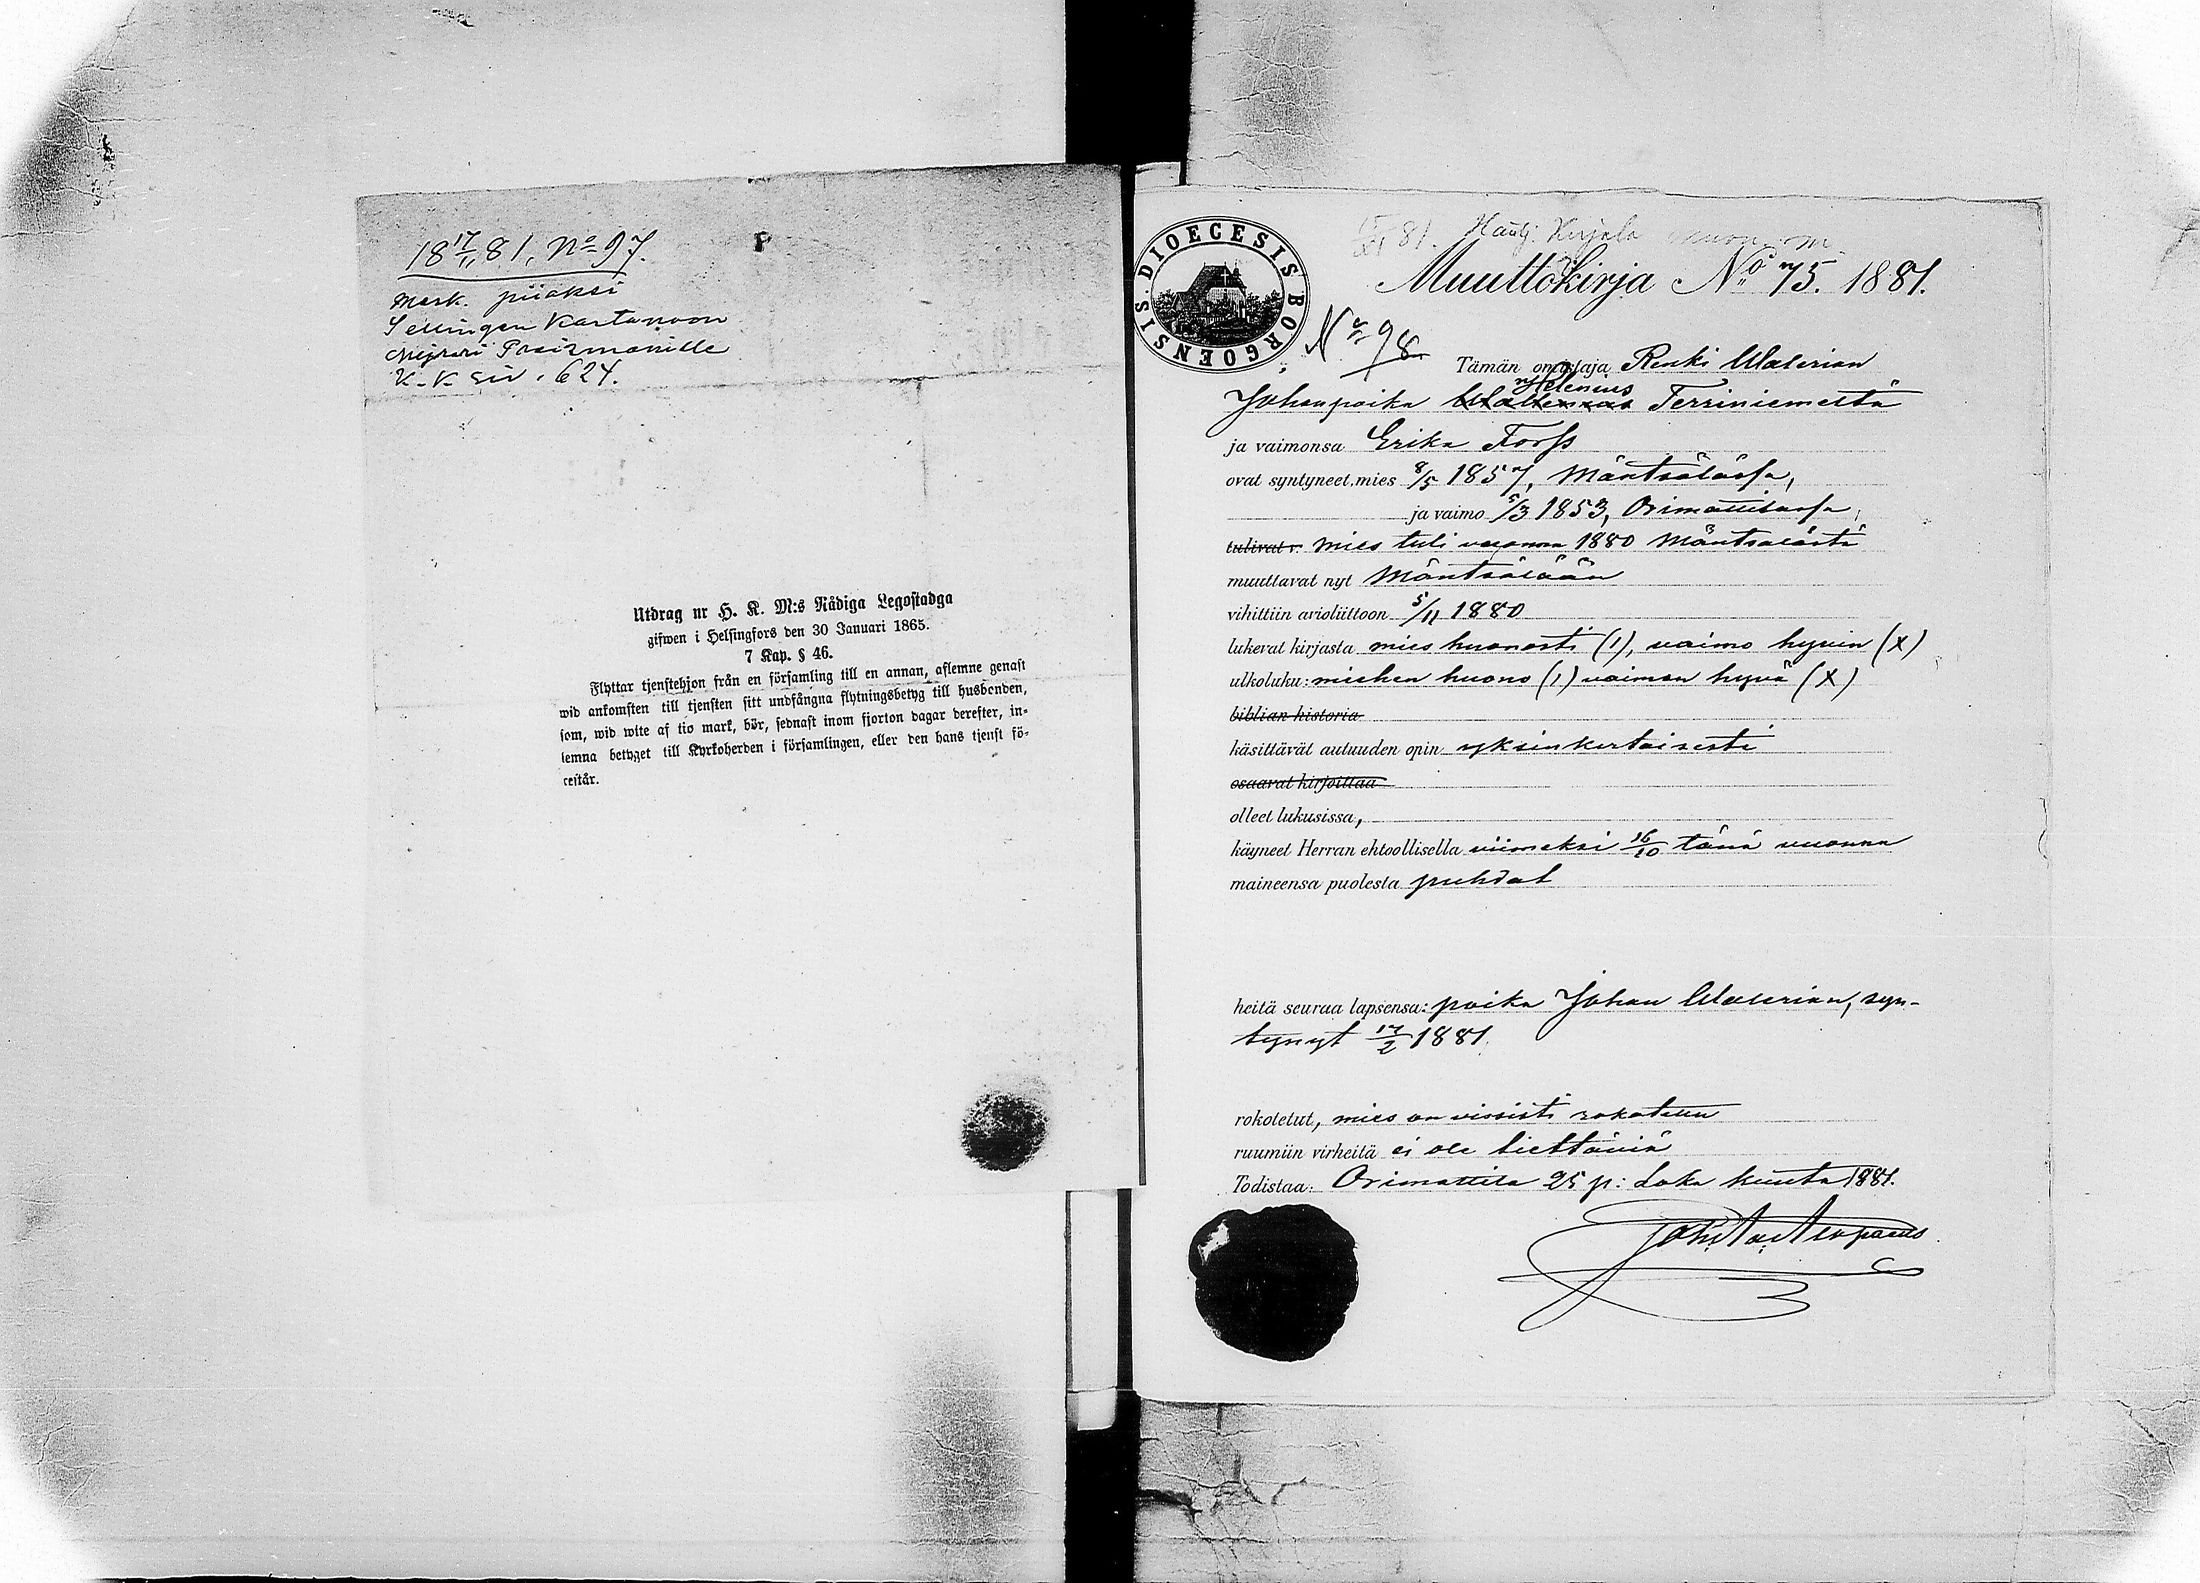 18 17/11 81, No 97.
Merk. piiaksi
Kartanoon
K-K siv. 624.
Utdrag ur H. K. M:s Nådiga Legostadga
gifwen i Helsingfors den 30 Januari 1865.
7 Kap. § 46.
Flyttar tjenstehjon från en församling till en annan, aflemne genast
wid ankomsten till tjensten sitt undfångna flytningsbetyg till husbonden,
som, wid wite af tio mark, bör, sednast inom fjorton dagar derefter, in-
lemna betyget till Kyrkoherden i församlingen, eller den hans tjenst fö-
restår.
DIOECESIS BORGOENSIS
81. Kirjala
Muuttokirja No 75. 1881.
No 98
Tämän omistaja Renki Walerian
Johanpoika Terriniemeltä
ja vaimonsa Erika Forss
ovat syntyneet, mies 8/5 1857, Mäntsälässä,
ja vaimo 5/3 1853, Orimattilassa,
tulivat v. mies tuli vuonna 1880 Mäntsälästä
muuttavat nyt Mäntsälään
vihittiin avioliittoon 5/11 1880
lukevat kirjasta mies huonosti (1), vaimo hyvin (X)
ulkoluku: miehen huono (1) vaimon hyvä (X)
biblian historia
käsittävät autuuden opin yksinkertaisesti
osaavat kirjoittaa
olleet lukusissa,
käyneet Herran ehtoollisella viimeksi 16/10 tänä vuonna
maineensa puolesta puhdat
heitä seuraa lapsensa: poika Johan Walerian, syn-
tynyt 17/2 1881.
rokotetut, mies on vissisti rokotettu
ruumiin virheitä ei ole tiettäviä
Todistaa: Orimattila 25 p: Loka kuuta 1881.